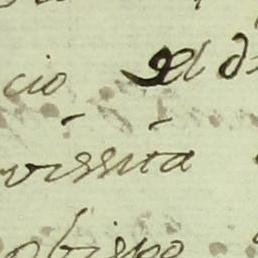 cio el d
vissita
obispo